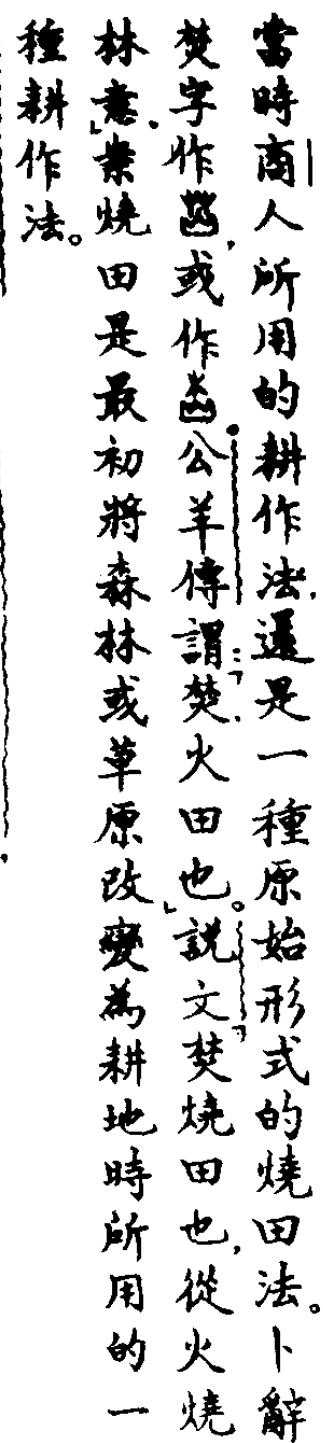 當時商人所用的耕作法,還是一種原始形式的燒田法。卜辭
焚字作,或作。公羊傳謂:「焚,火田也。」說文「焚燒田也,從火燒
林意。」業燒田是最初將森林或草原改變為耕地時所用的一
種耕作法。